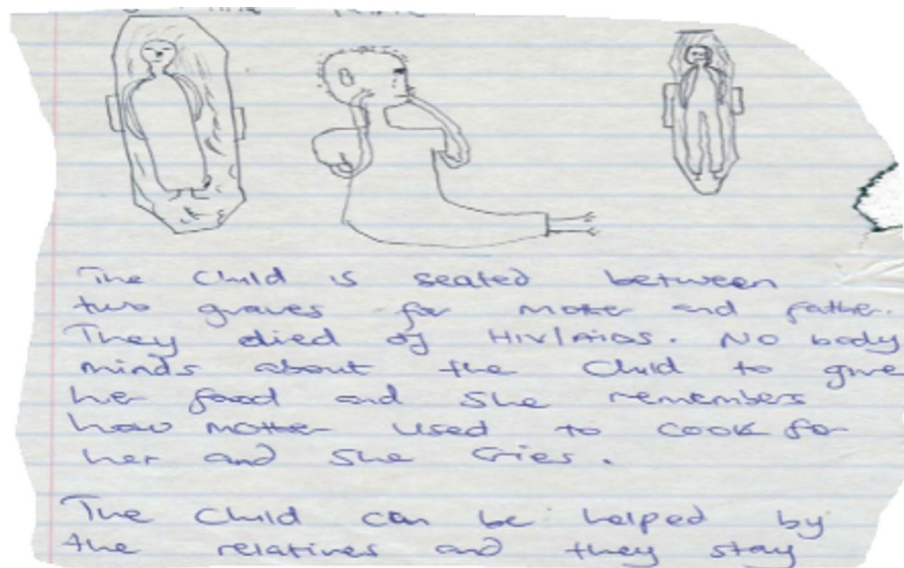 The Child is seated between
two graves for mother and father.
They died of HIV/AIDS. No body
minds about the Child to give
her food and she remembers
how mother used to cook for
her and she cries.
The Child can be helped by
the relatives and they stay